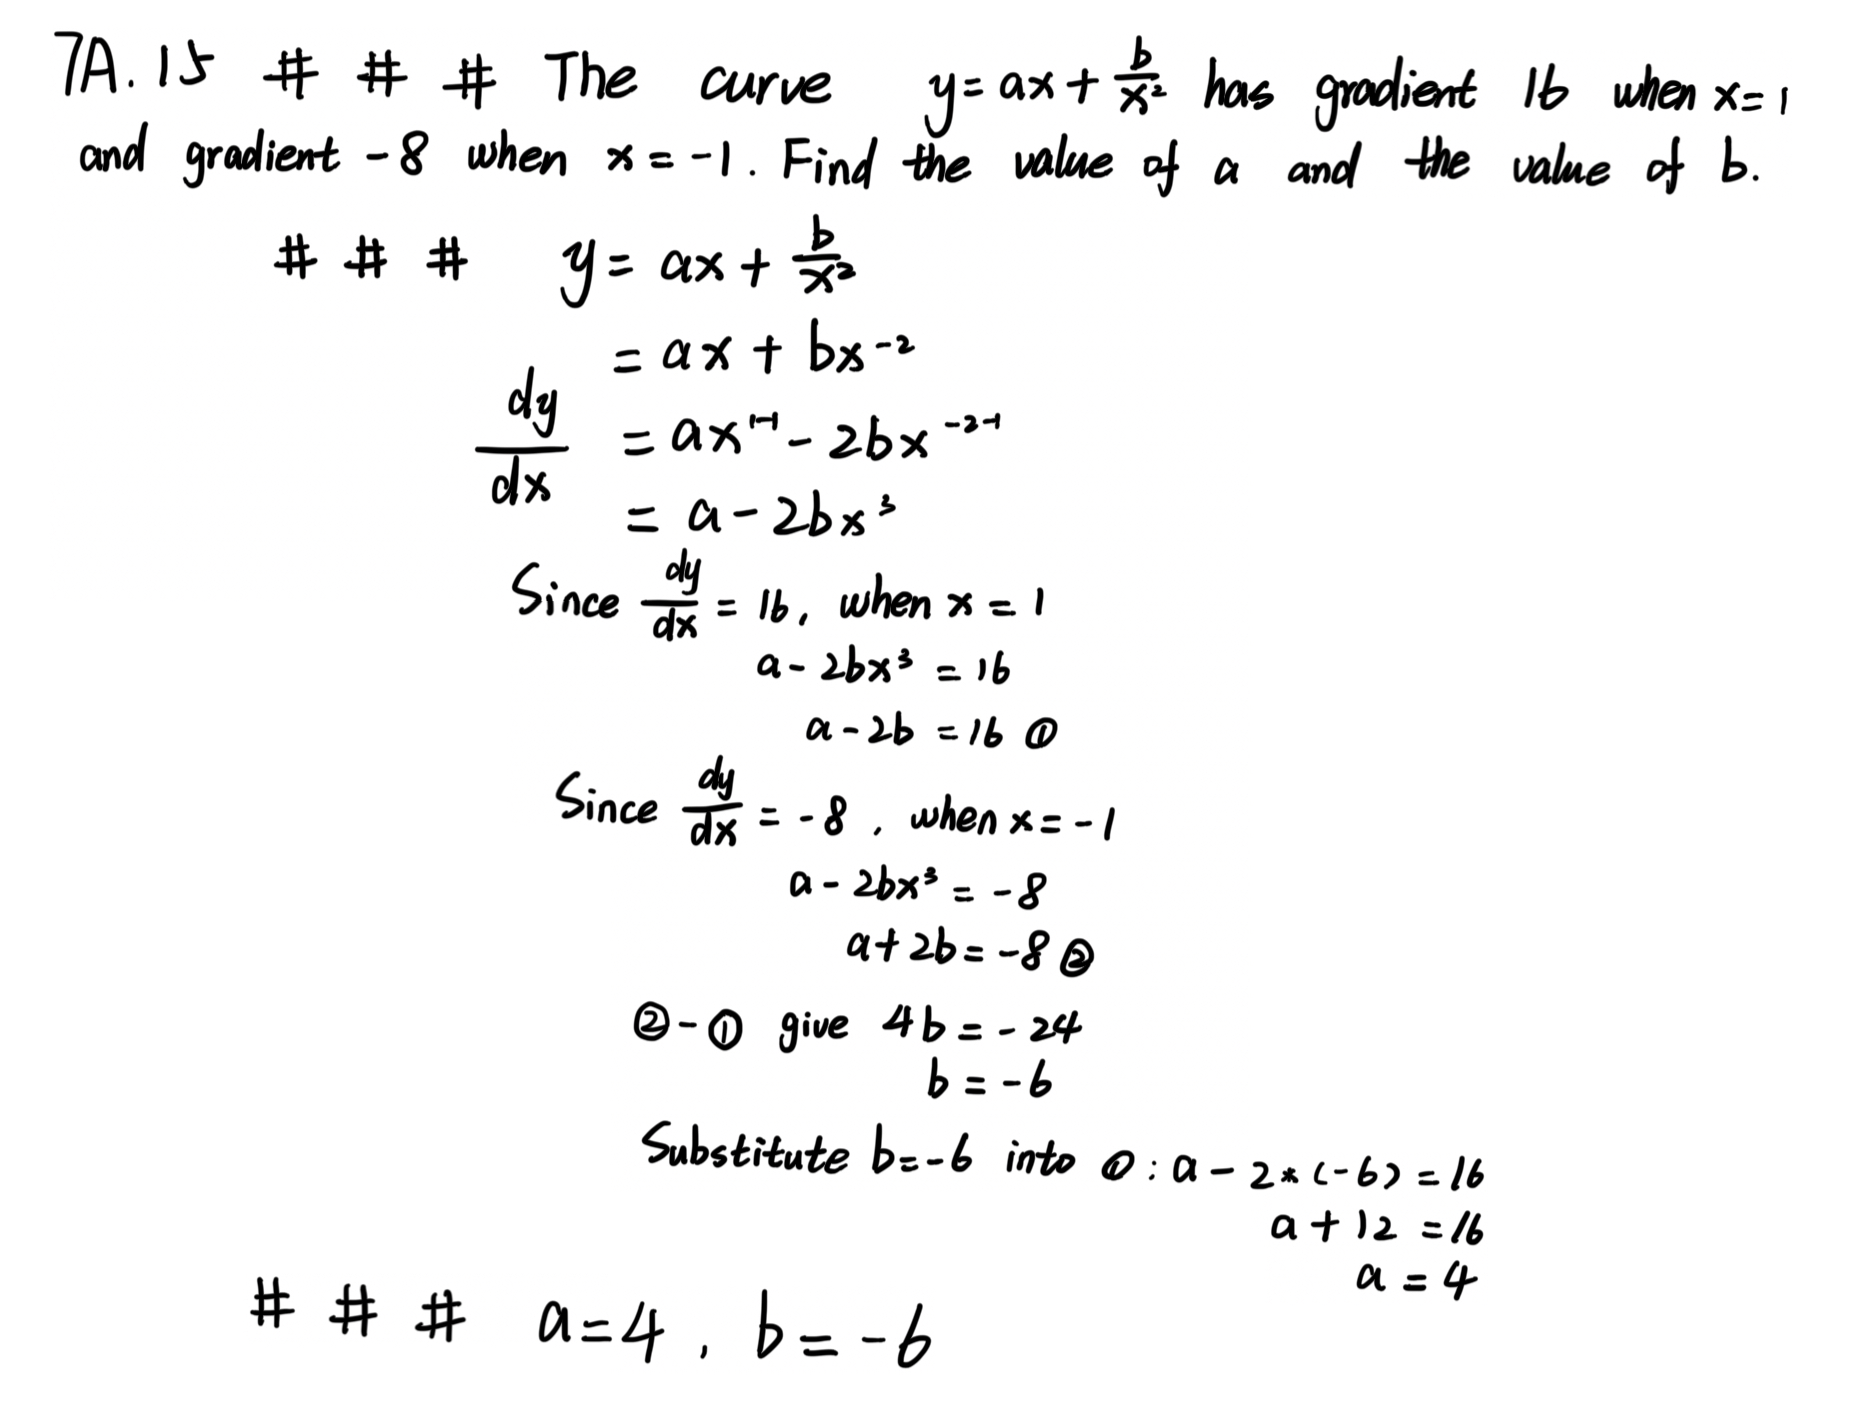 7A.15 # # # The curve y = ax + b/x² has gradient 16 when x = 1
and gradient -8 when x = -1. Find the value of a and the value of b.
# # # y = ax + b/x²
= ax + bx⁻²
dy/dx = ax¹⁻¹ - 2bx⁻²⁻¹
= a - 2bx³
Since dy/dx = 16, when x = 1
a - 2bx³ = 16
a - 2b = 16 ①
Since dy/dx = -8, when x = -1
a - 2bx³ = -8
a + 2b = -8 ②
② - ① give 4b = -24
b = -6
Substitute b = -6 into ①: a - 2*(-6) = 16
a + 12 = 16
a = 4
# # # a = 4, b = -6